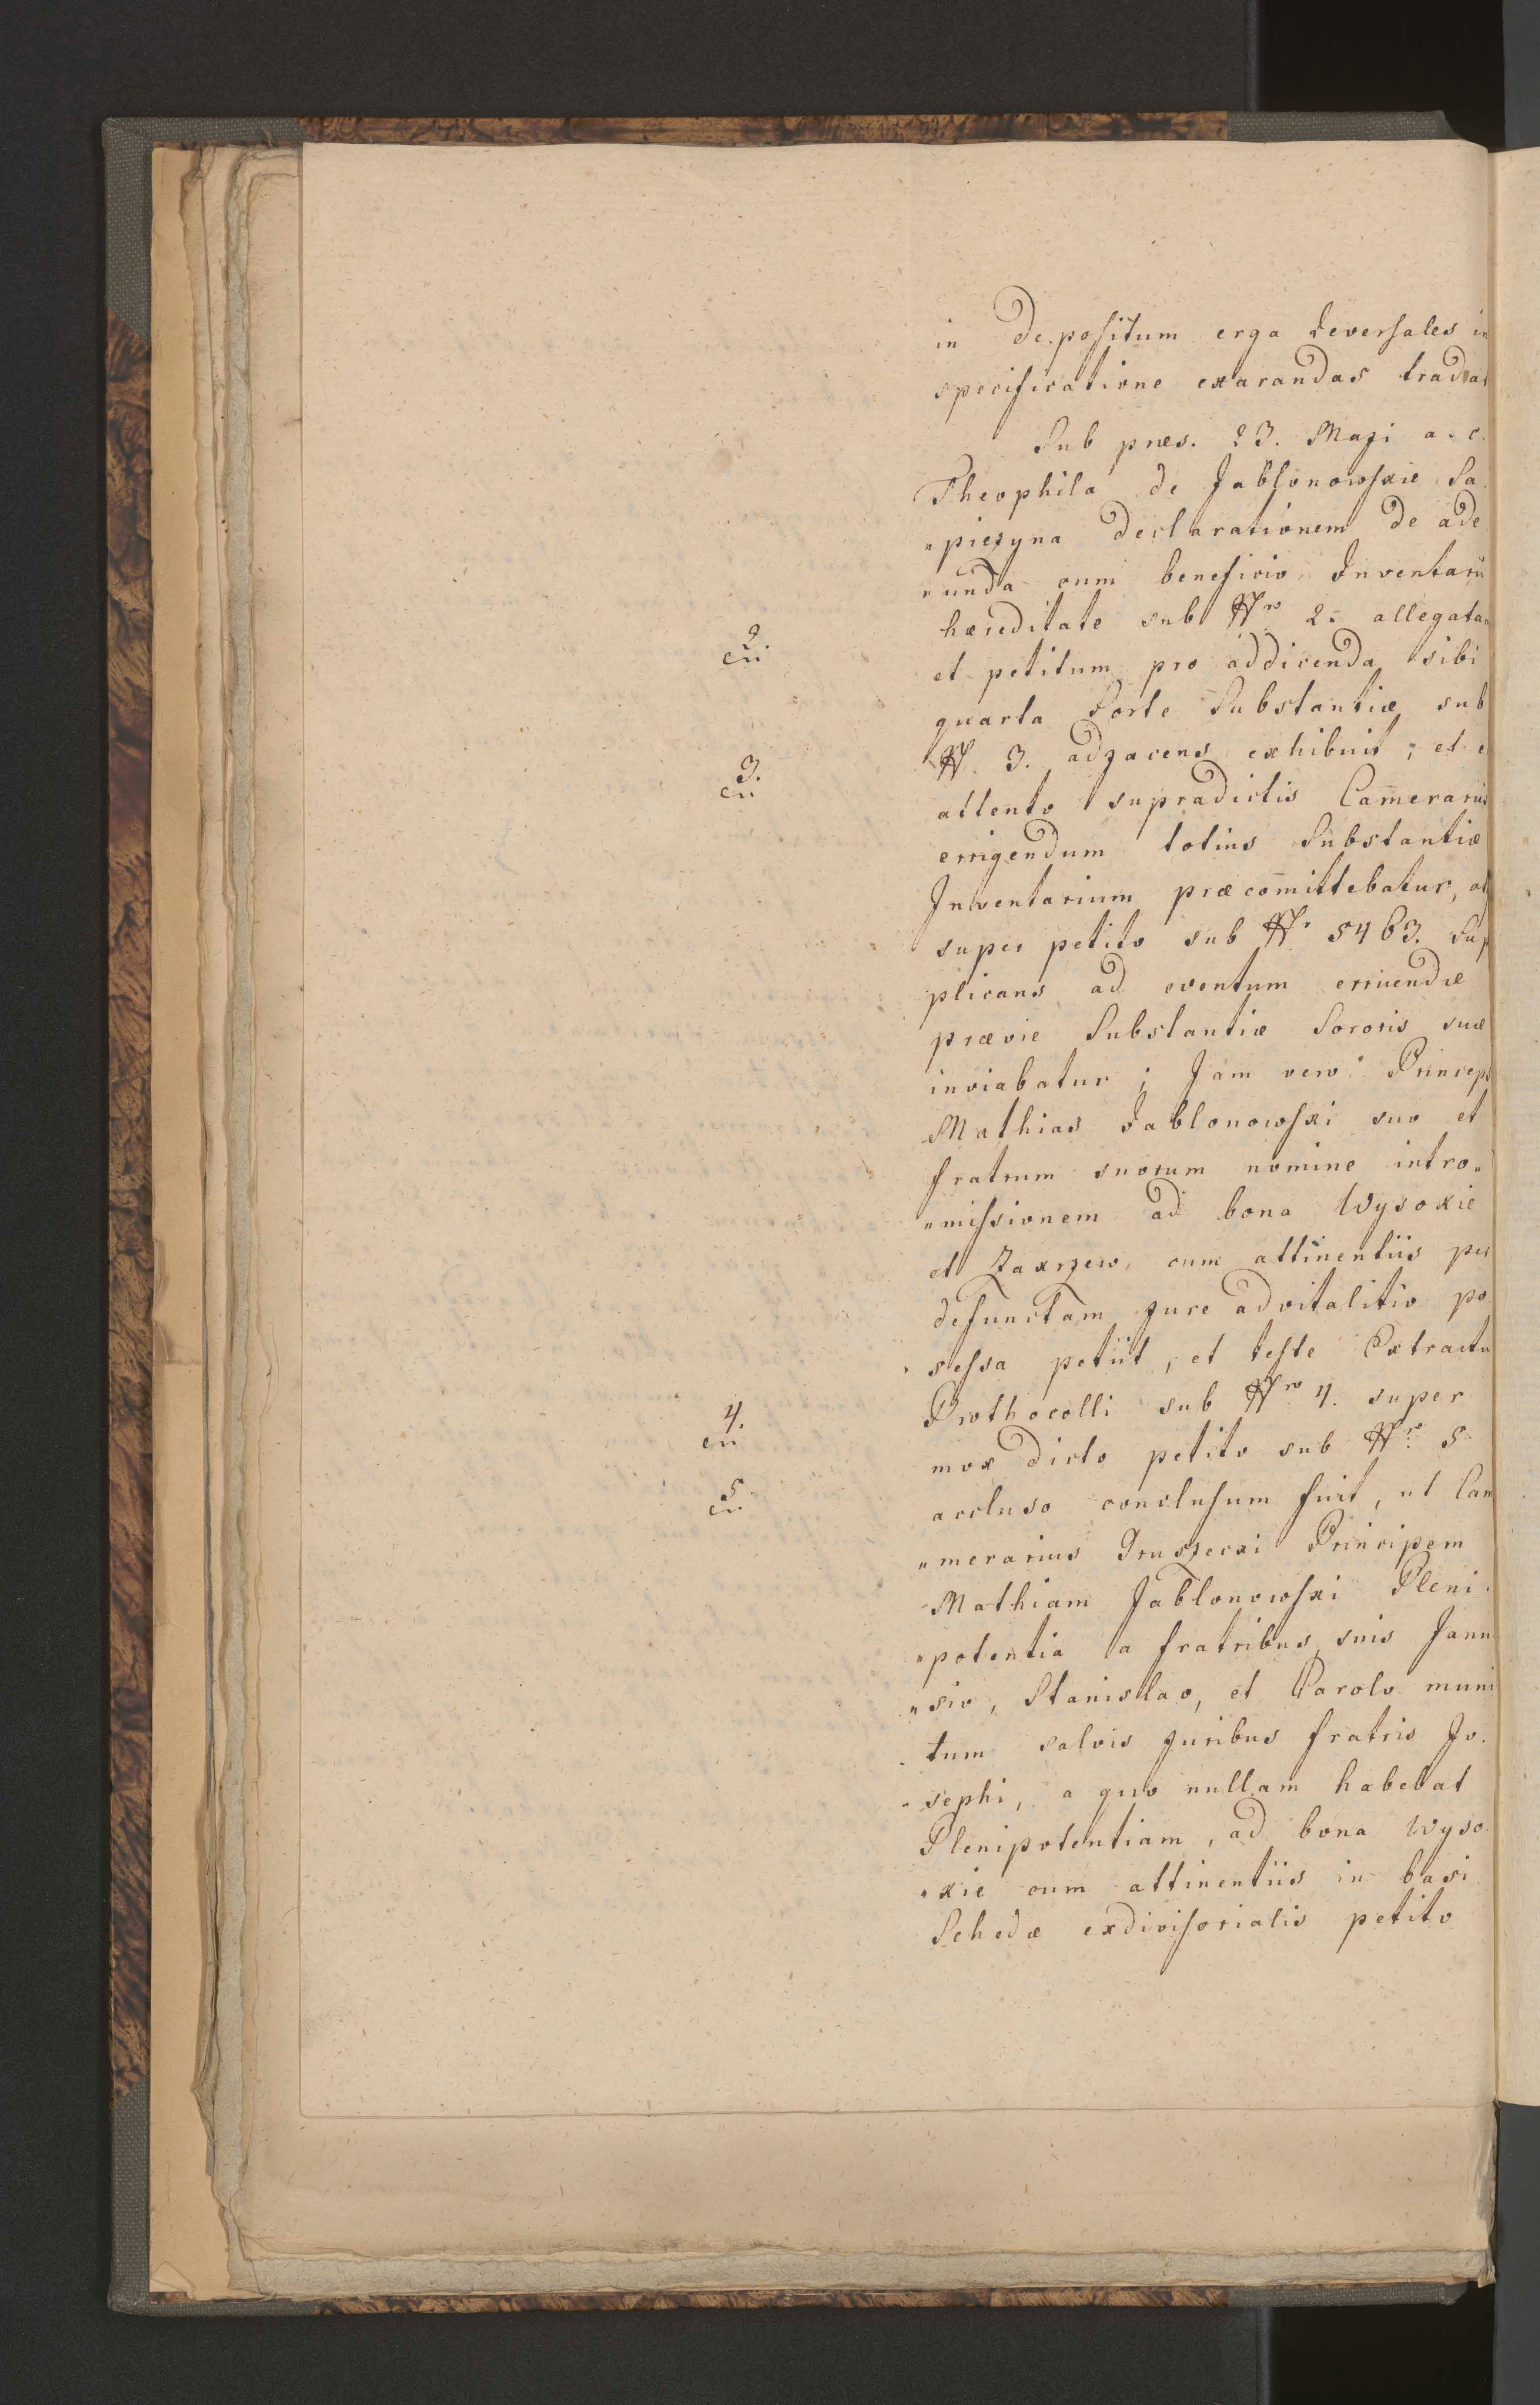 in Depositum erga Reversales in
specificatione exarandas tradat
Sub præs. 23. Maji a. c.
Theophila de Jabłonowskie Sa
„piezyna declarationem de ade
„unda cum beneficio Inventarii
hæreditate sub Nro 2. allegatam
2.
et petitum pro addicenda sibi
quarta Sorte Substantiæ sub
N. 3. adjacens exhibuit, et
3.
attento supradictis Camerariis
errigendum totius Substantiæ
Inventarium præcom̄ittebatur,
super petito sub Nr 5463. Sup
plicans ad eventum erruendæ
prævie Substantiæ Sororis suæ
inviabatur; Jam vero Princeps
Mathias Jablonowski suo et
fratrum suorum nomine intro„
„missionem ad bona Wysokie
et Zakrzew cum attinentiis per
defunctam jure advitalitio po
sessa petiit, et teste Extractu
Prothocolli sub Nro 4. super
4.
mox dicto petito sub Nro 5
accluso conclusum fuit, ut Cam
5.
„merarius Gruszecki Principem
Mathiam Jabłonowski Pleni
„potentia a fratribus suis Janu
„sio, Stanislao, et Carolo muni
tum salvis juribus fratris Jo
sephi, a quo nullam habebat
Plenipotentiam, ad bona Wyso
„kie cum attinentiis in basi
Schedæ exdivisorialis petito